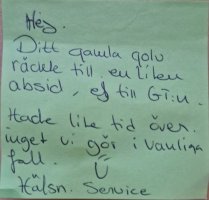 Hej.
Ditt gamla golv
räckte till en liten
absid, ef till GT:n.
Hade lite tid över.
inget vi gör i vanliga
fall. Ü
Hälsn. Service